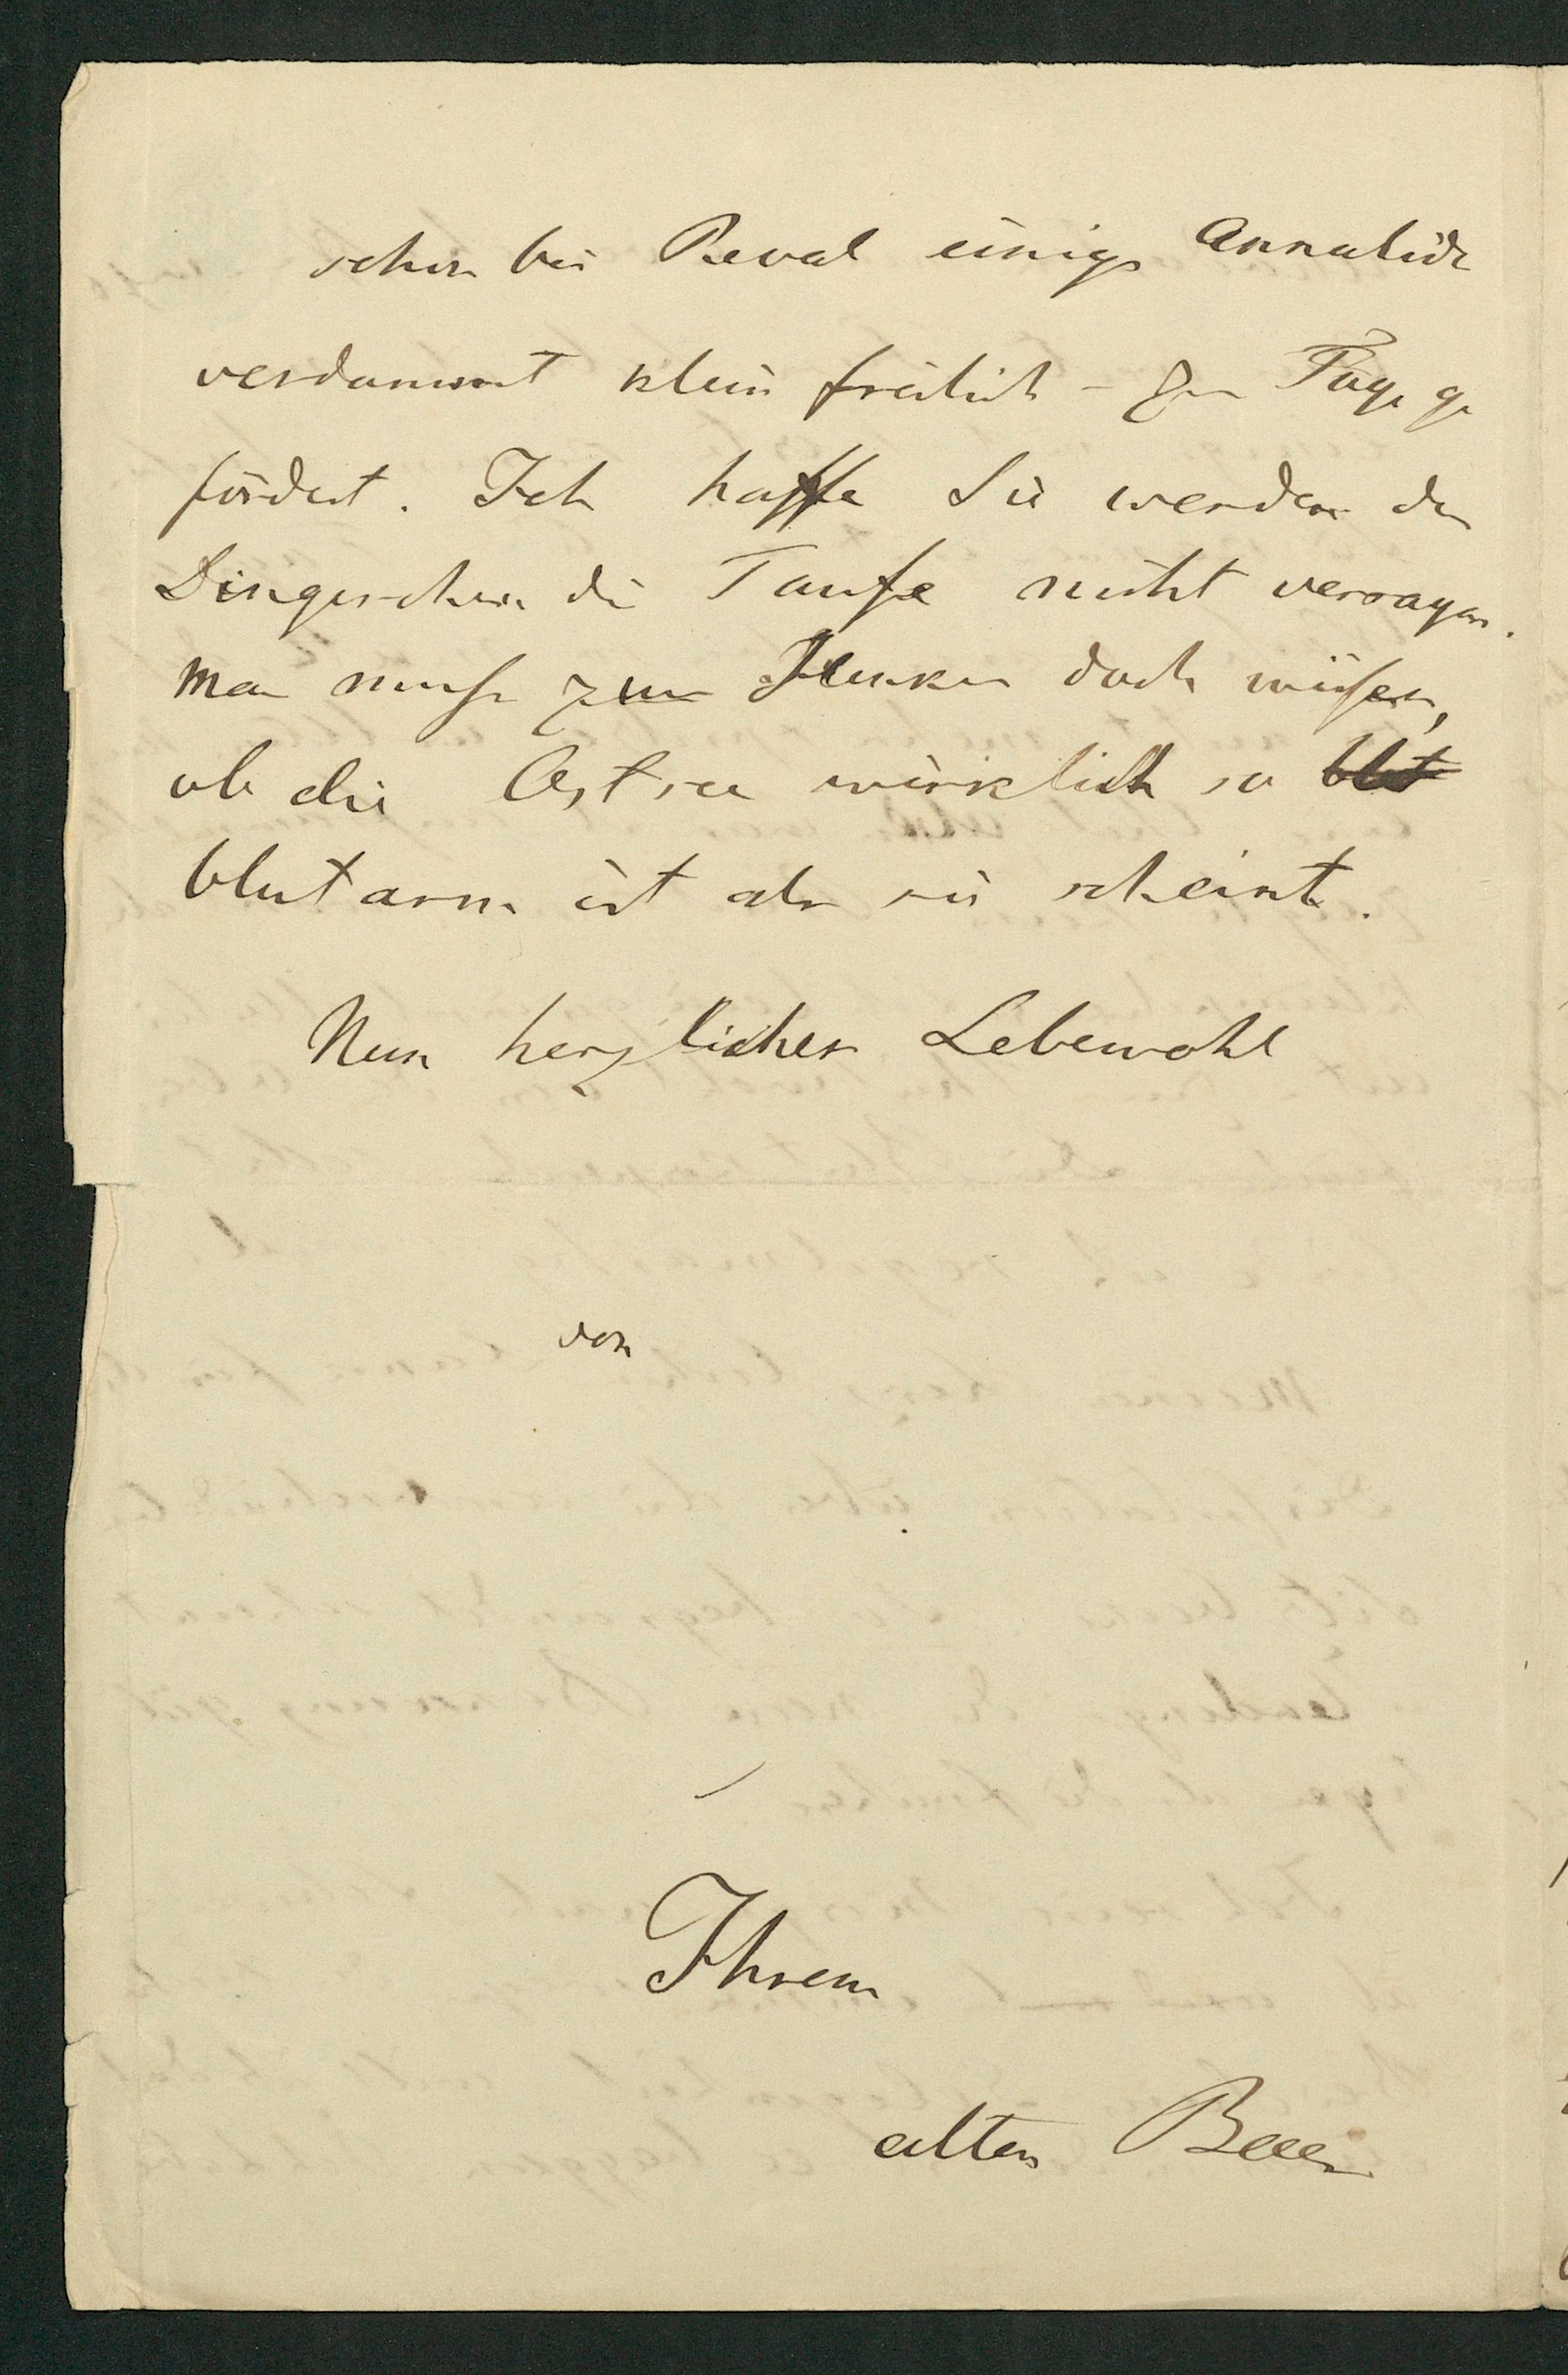 schon bei Reval einige Annulide
verdammt klein freilich – zu Tage ge
fördert. Ich hoffe Sie werden den
Dingerchen die Taufe nicht versagen.
Man muss zum Henker doch wissen,
ob die Ostsee wirklich so blut
blutarm ist als sie scheint.
Nun herzliches Lebewohl
von
Ihrem
alten Baer